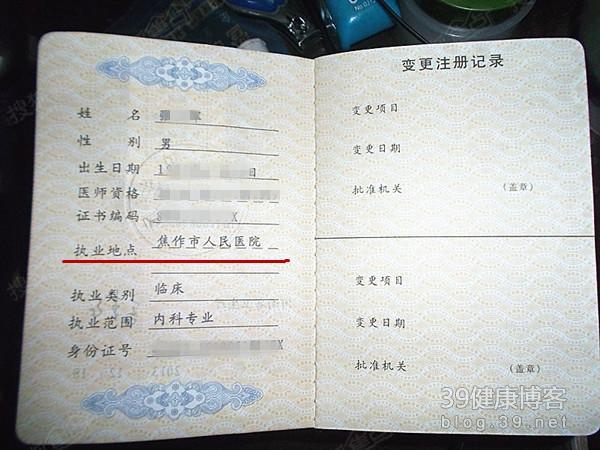 姓 名
性 别 男
出生日期 1 日
医师资格
证书编码 X
执业地点 焦作市人民医院
执业类别 临床
执业范围 内科专业
身份证号 X
变更注册记录
变更项目
变更日期
批准机关 (盖章)
变更项目
变更日期
批准机关 (盖章)
39健康博客
blog.39.net